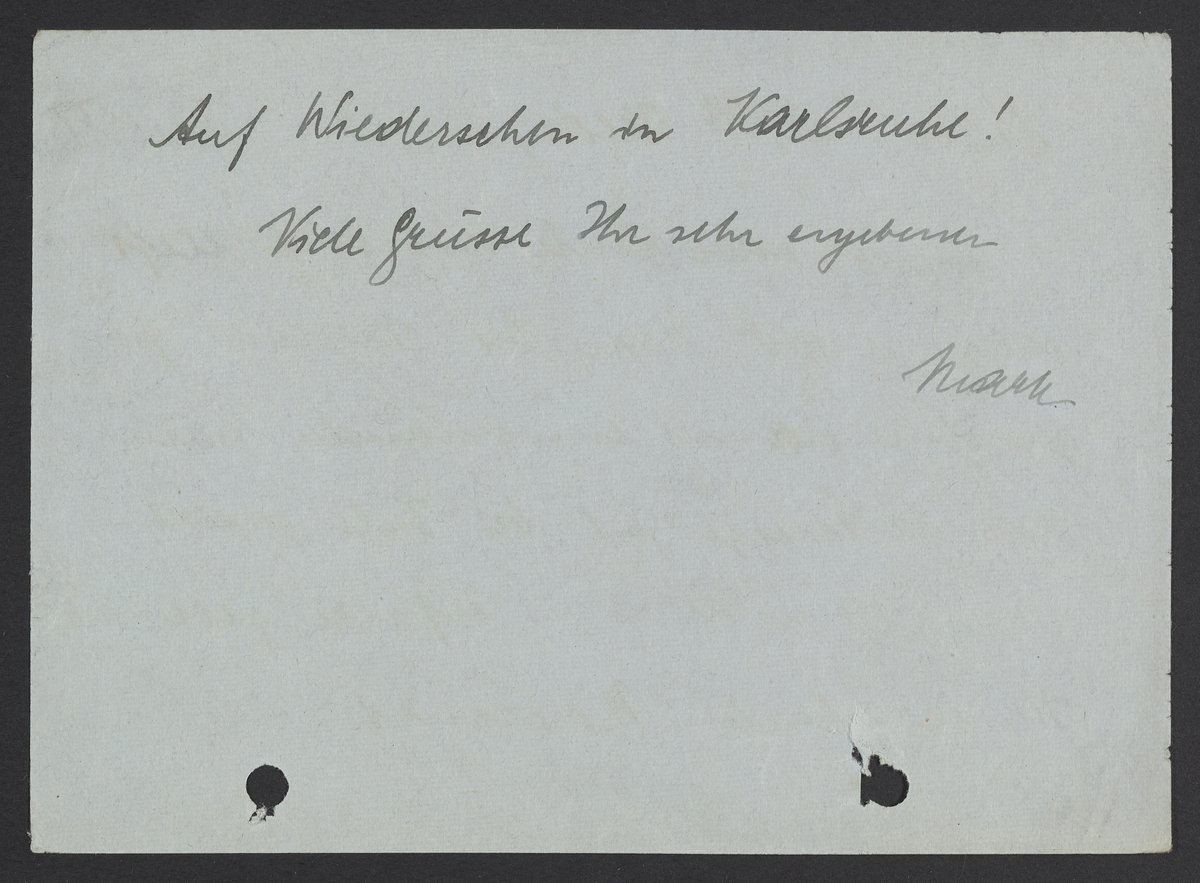 Auf Wiedersehen in Karlsruhe!
Viele Grüsse Ihr sehr ergebener
Mark